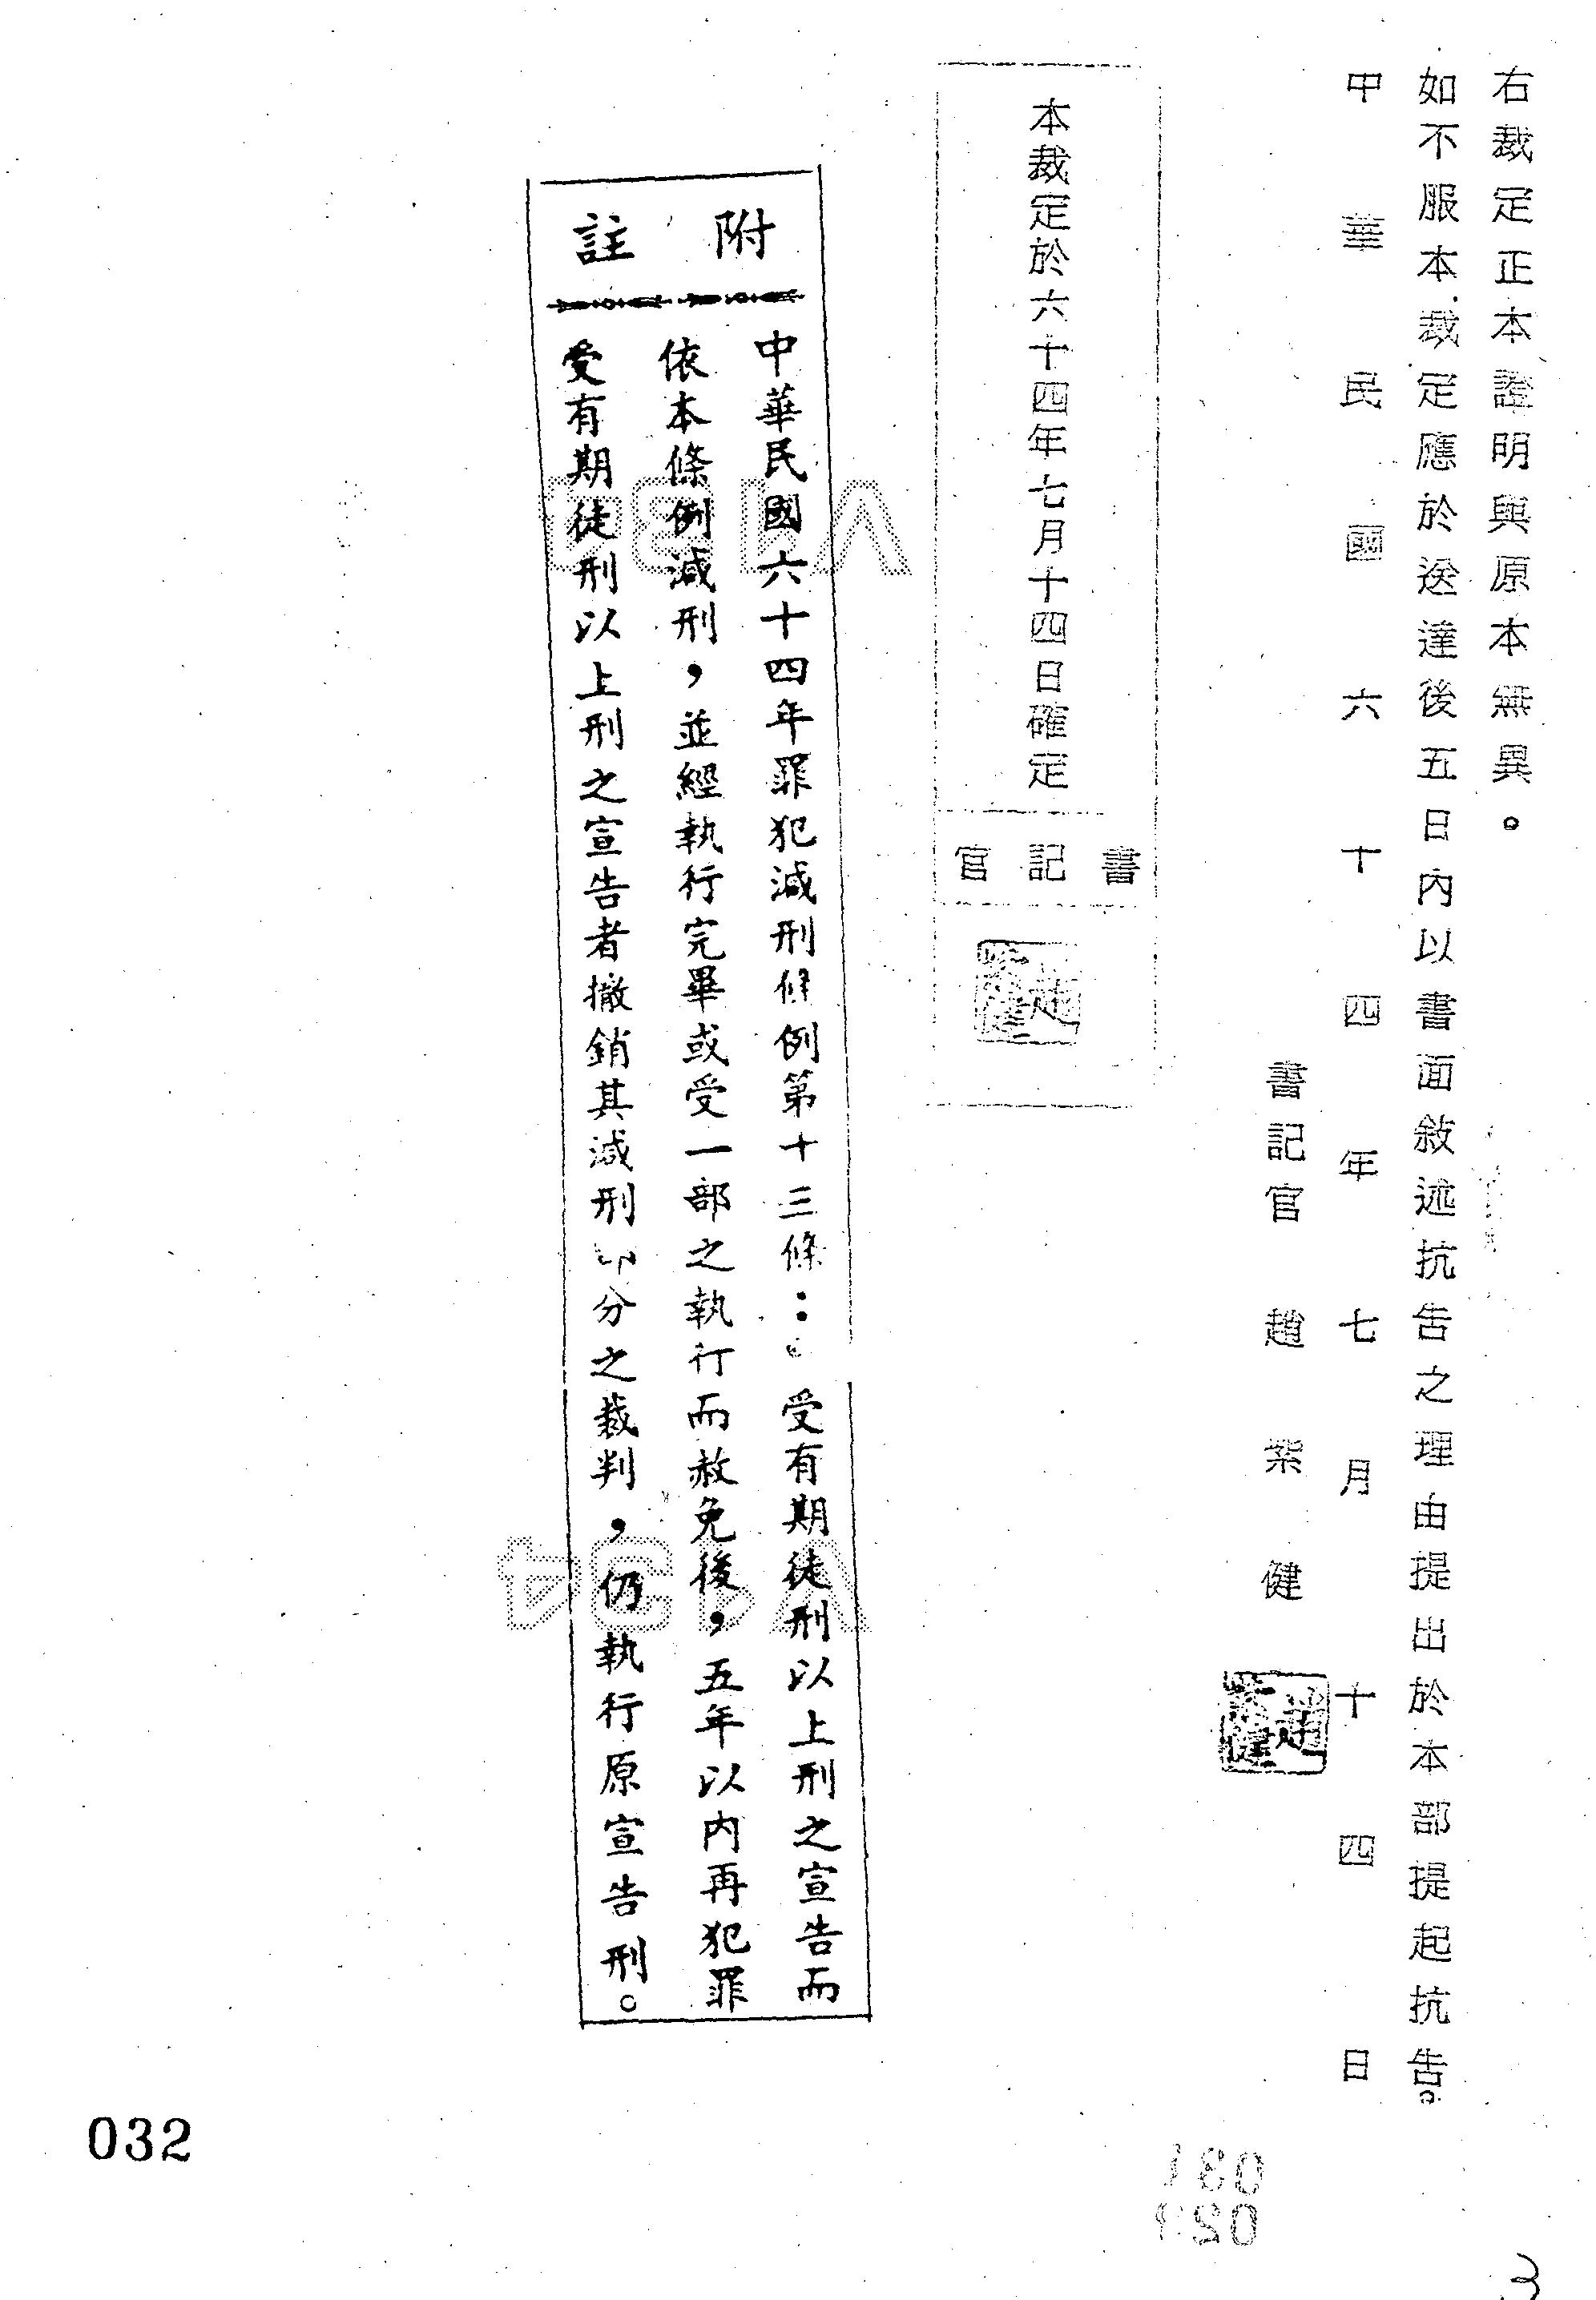 右裁定正本證明與原本無異。
如不服本裁定應於送達後五日內以書面敘述抗告之理由提出於本部提起抗告。
中華民國六十四年七月十四日
書記官 趙 紫 健
趙紫健
本裁定於六十四年七月十四日確定
書記官
趙紫健
附註
中華民國六十四年罪犯減刑條例第十三條：受有期徒刑以上刑之宣告而
依本條例減刑，並經執行完畢或受一部之執行而赦免後，五年以內再犯罪
受有期徒刑以上刑之宣告者撤銷其減刑部分之裁判，仍執行原宣告刑。
032